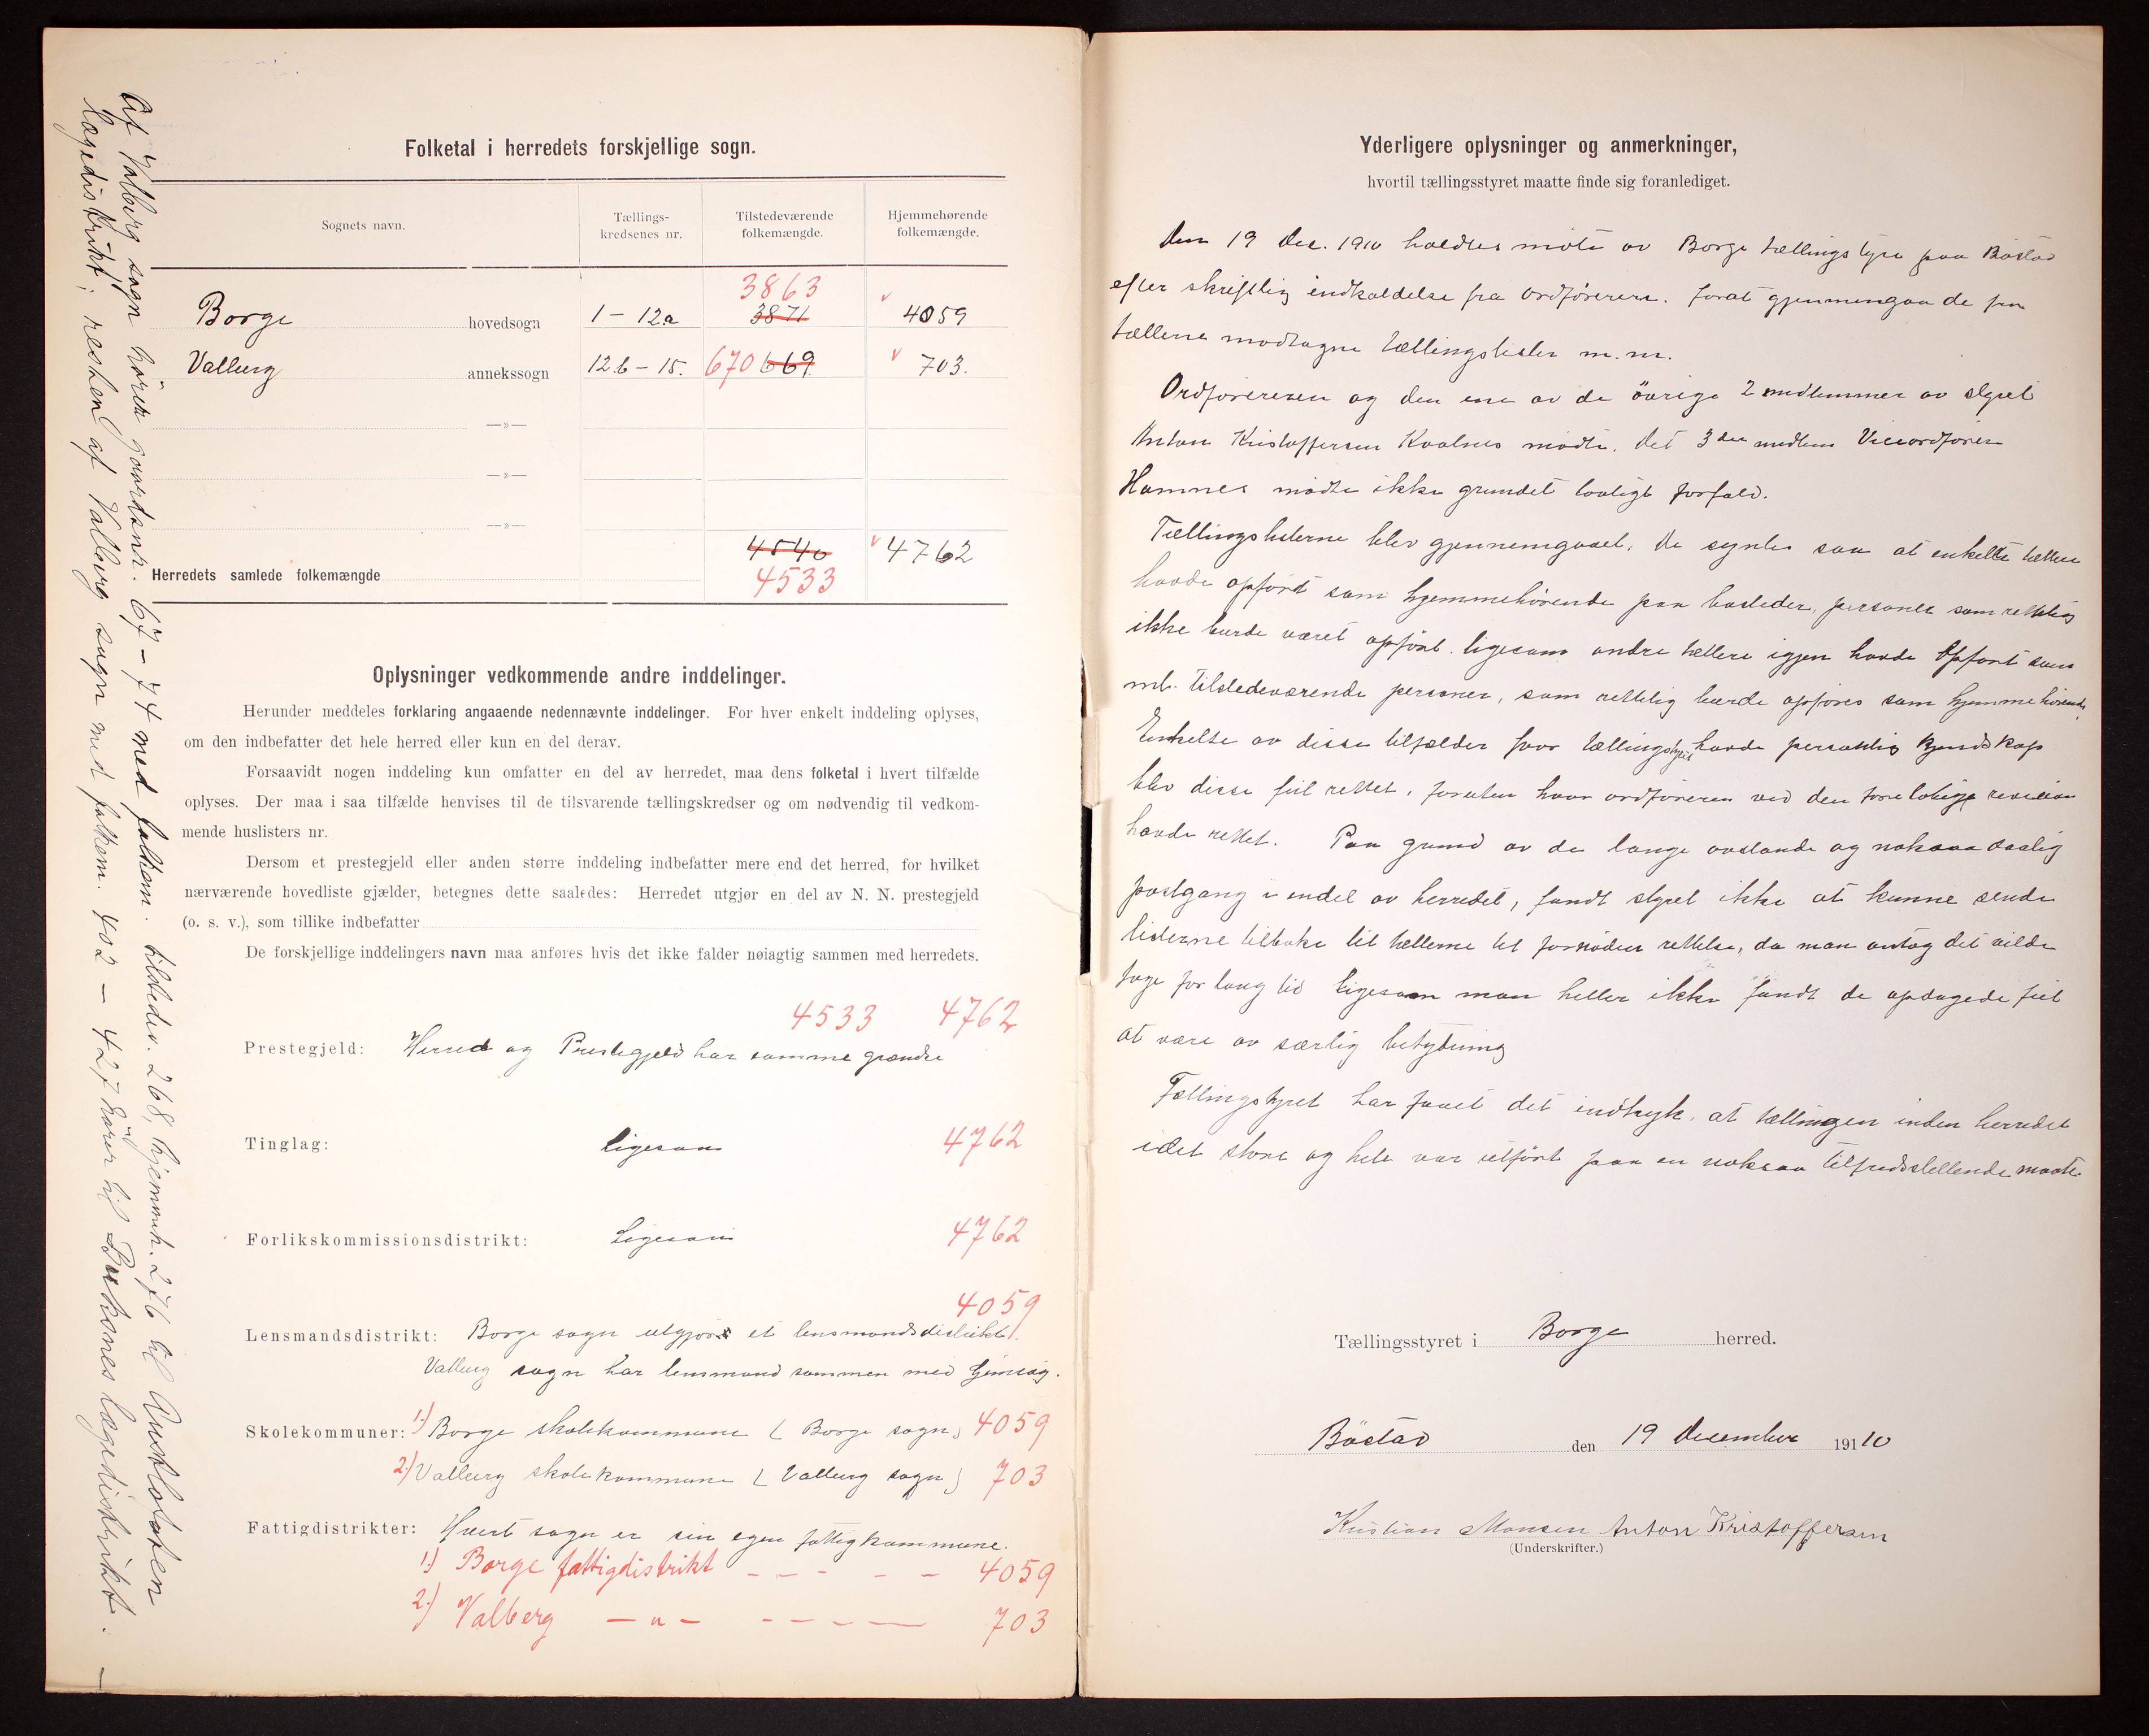 Folketal i herredets forskjellige sogn.
Sognets navn. Tællings-kredsenes nr. Tilstedeværende folkemængde. Hjemmehørende folkemængde.
3863
Borge hovedsogn 1 - 12a 3871 4059
Valberg annekssogn 12.b - 15. 670 669 703.
—»—
—»—
—»—
4540 4762
Herredets samlede folkemængde 4533
Oplysninger vedkommende andre inddelinger.
Herunder meddeles forklaring angaaende nedennævnte inddelinger. For hver enkelt inddeling oplyses,
om den indbefatter det hele herred eller kun en del derav.
Forsaavidt nogen inddeling kun omfatter en del av herredet, maa dens folketal i hvert tilfælde
oplyses. Der maa i saa tilfælde henvises til de tilsvarende tællingskredser og om nødvendig til vedkom-
mende huslisters nr.
Dersom et prestegjeld eller anden større inddeling indbefatter mere end det herred, for hvilket
nærværende hovedliste gjælder, betegnes dette saaledes: Herredet utgjør en del av N. N. prestegjeld
(o. s. v.), som tillike indbefatter
De forskjellige inddelingers navn maa anføres hvis det ikke falder nøiagtig sammen med herredets.
4533 4762
Prestegjeld: Herred og Prestegjeld har samme grændse
Tinglag: ligesaa 4762
Forlikskommissionsdistrikt: Ligesaa 4762
4059
Lensmandsdistrikt: Borge sogn utgjør et lensmandsdistrikt.
Valberg sogn har lensmand sammen med Gimsøy.
Skolekommuner: 1.) Borge skolekommune (Borge sogn) 4059
2.) Valberg skolekommune (Valberg sogn) 703
Fattigdistrikter: Hvert sogn er sin egen fattigkommune.
1.) Borge fattigdistrikt - - - - - 4059
2.) Valberg — „ — - - - - — 703
Af Valberg sogn hörer gaardsnr. 67 - 74 med folkem. tilstedev. 268, hjemmeh. 276 til Austlofoten
lægedistrikt; resten af Valberg sogn med folkem. 402 - 427 hörer til Buksnes lægedistrikt. —
Yderligere oplysninger og anmerkninger,
hvortil tællingsstyret maatte finde sig foranlediget.
Den 19 Dec. 1910 holdtes møte av Borge tællingstyre paa Böstad
efter skriftlig indkaldelse fra ordföreren. forat gjennemgaa de fra
tællerne modtagne tællingslister m. m.
Ordföreren og den ene av de övrige 2 medlemmer av styret
Anton Kristoffersen Kvalnes mødte. Det 3die medlem Viceordförer
Hamnes mødte ikke grundet lovligt forfald.
Tællingslisterne blev gjennemgaaet. De syntes som at enkelte tællere
havde opfört som hjemmehörende paa bosteder, personer som rettelig
ikke burde været opfört. ligesom andre tællere igjen havde opfört som
mb. tilstedeværende personer, som rettelig burde opföres som hjemmehörende.
Enkelte av disse tilfælder hvor tællingstyret havde personlig kjendskap
blev disse feil rettet, foruten hvor ordföreren ved den foreløbige revision
havde rettet. Paa grund av de lange avstande og noksaa daarlig
postgang i endel av herredet, fandt styret ikke at kunne sende
listerne tilbake til tællerne til fornöden rettelse, da man antog det vilde
tage for lang tid ligesom man heller ikke fandt de opdagede feil
at være av særlig betydning
Tællingstyret har faaet det indtryk, at tællingen inden herredet
idet store og hele var utfört paa en noksaa tilfredsstillende maate.
Tællingsstyret i Borge herred.
Böstad den 19 December 1910
Kristian Monsen Anton Kristoffersen
(Underskrifter.)